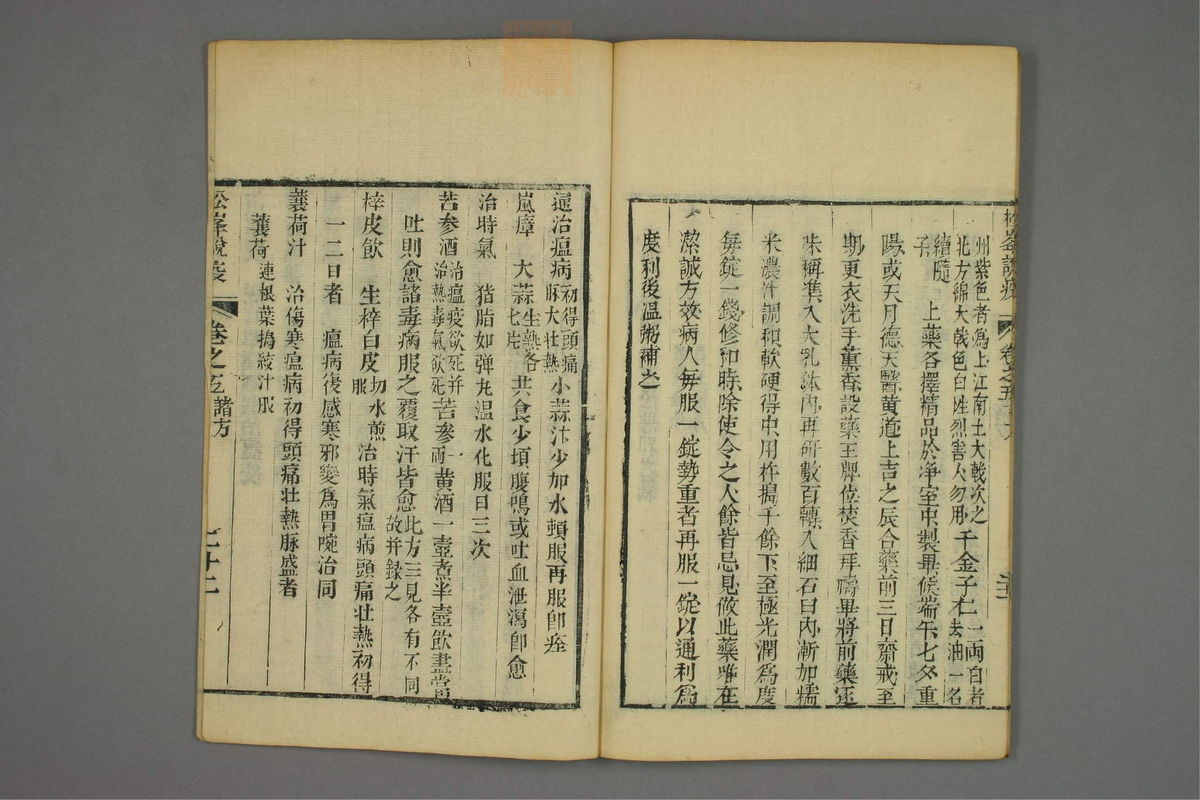 州紫色者爲上江南土大戟次之
北方綿大戟色白性烈害人勿用
千金子仁一兩白者
去油一名
續隨
子
上藥各擇精品於净室中製畢候端午七夕重
陽或天月德天醫黄道上吉之辰合藥前三日齋戒至
期更衣洗手薫香設藥王牌位焚香拜禱畢將前藥逐
味稱準入大乳鉢內再研數百轉入細石臼內漸加糯
米濃汁調和軟硬得中用杵搗千餘下至極光潤爲度
每錠一錢修和時除使令之人餘皆忌見做此藥唯在
潔誠方效病人每服一錠勢重者再服一錠以通利爲
度利後温粥補之
逼治瘟病初得頭痛
脉大壯熱
小蒜汁少加水頓服再服卽痊
嵐瘴 大蒜生熟各
七片
共食少頃腹鳴或吐血泄瀉卽愈
治時氣 猪脂如弹丸温水化服日三次
苦參酒治瘟疫欲死并
治熱毒氣欲死
苦參一
兩
黄酒一壺煮半壺飲盡當
吐則愈諸毒病服之覆取汗皆愈此方三見各有不同
故并録之
梓皮飲 生梓白皮切水煎
服
治時氣瘟病頭痛壯熱初得
一二日者 瘟病復感寒邪變爲胃啘治同
蘘荷汁 治傷寒瘟病初得頭痛壯熱脉盛者
蘘荷連根葉搗絞汁服
松峯說疫 卷之五 諸方